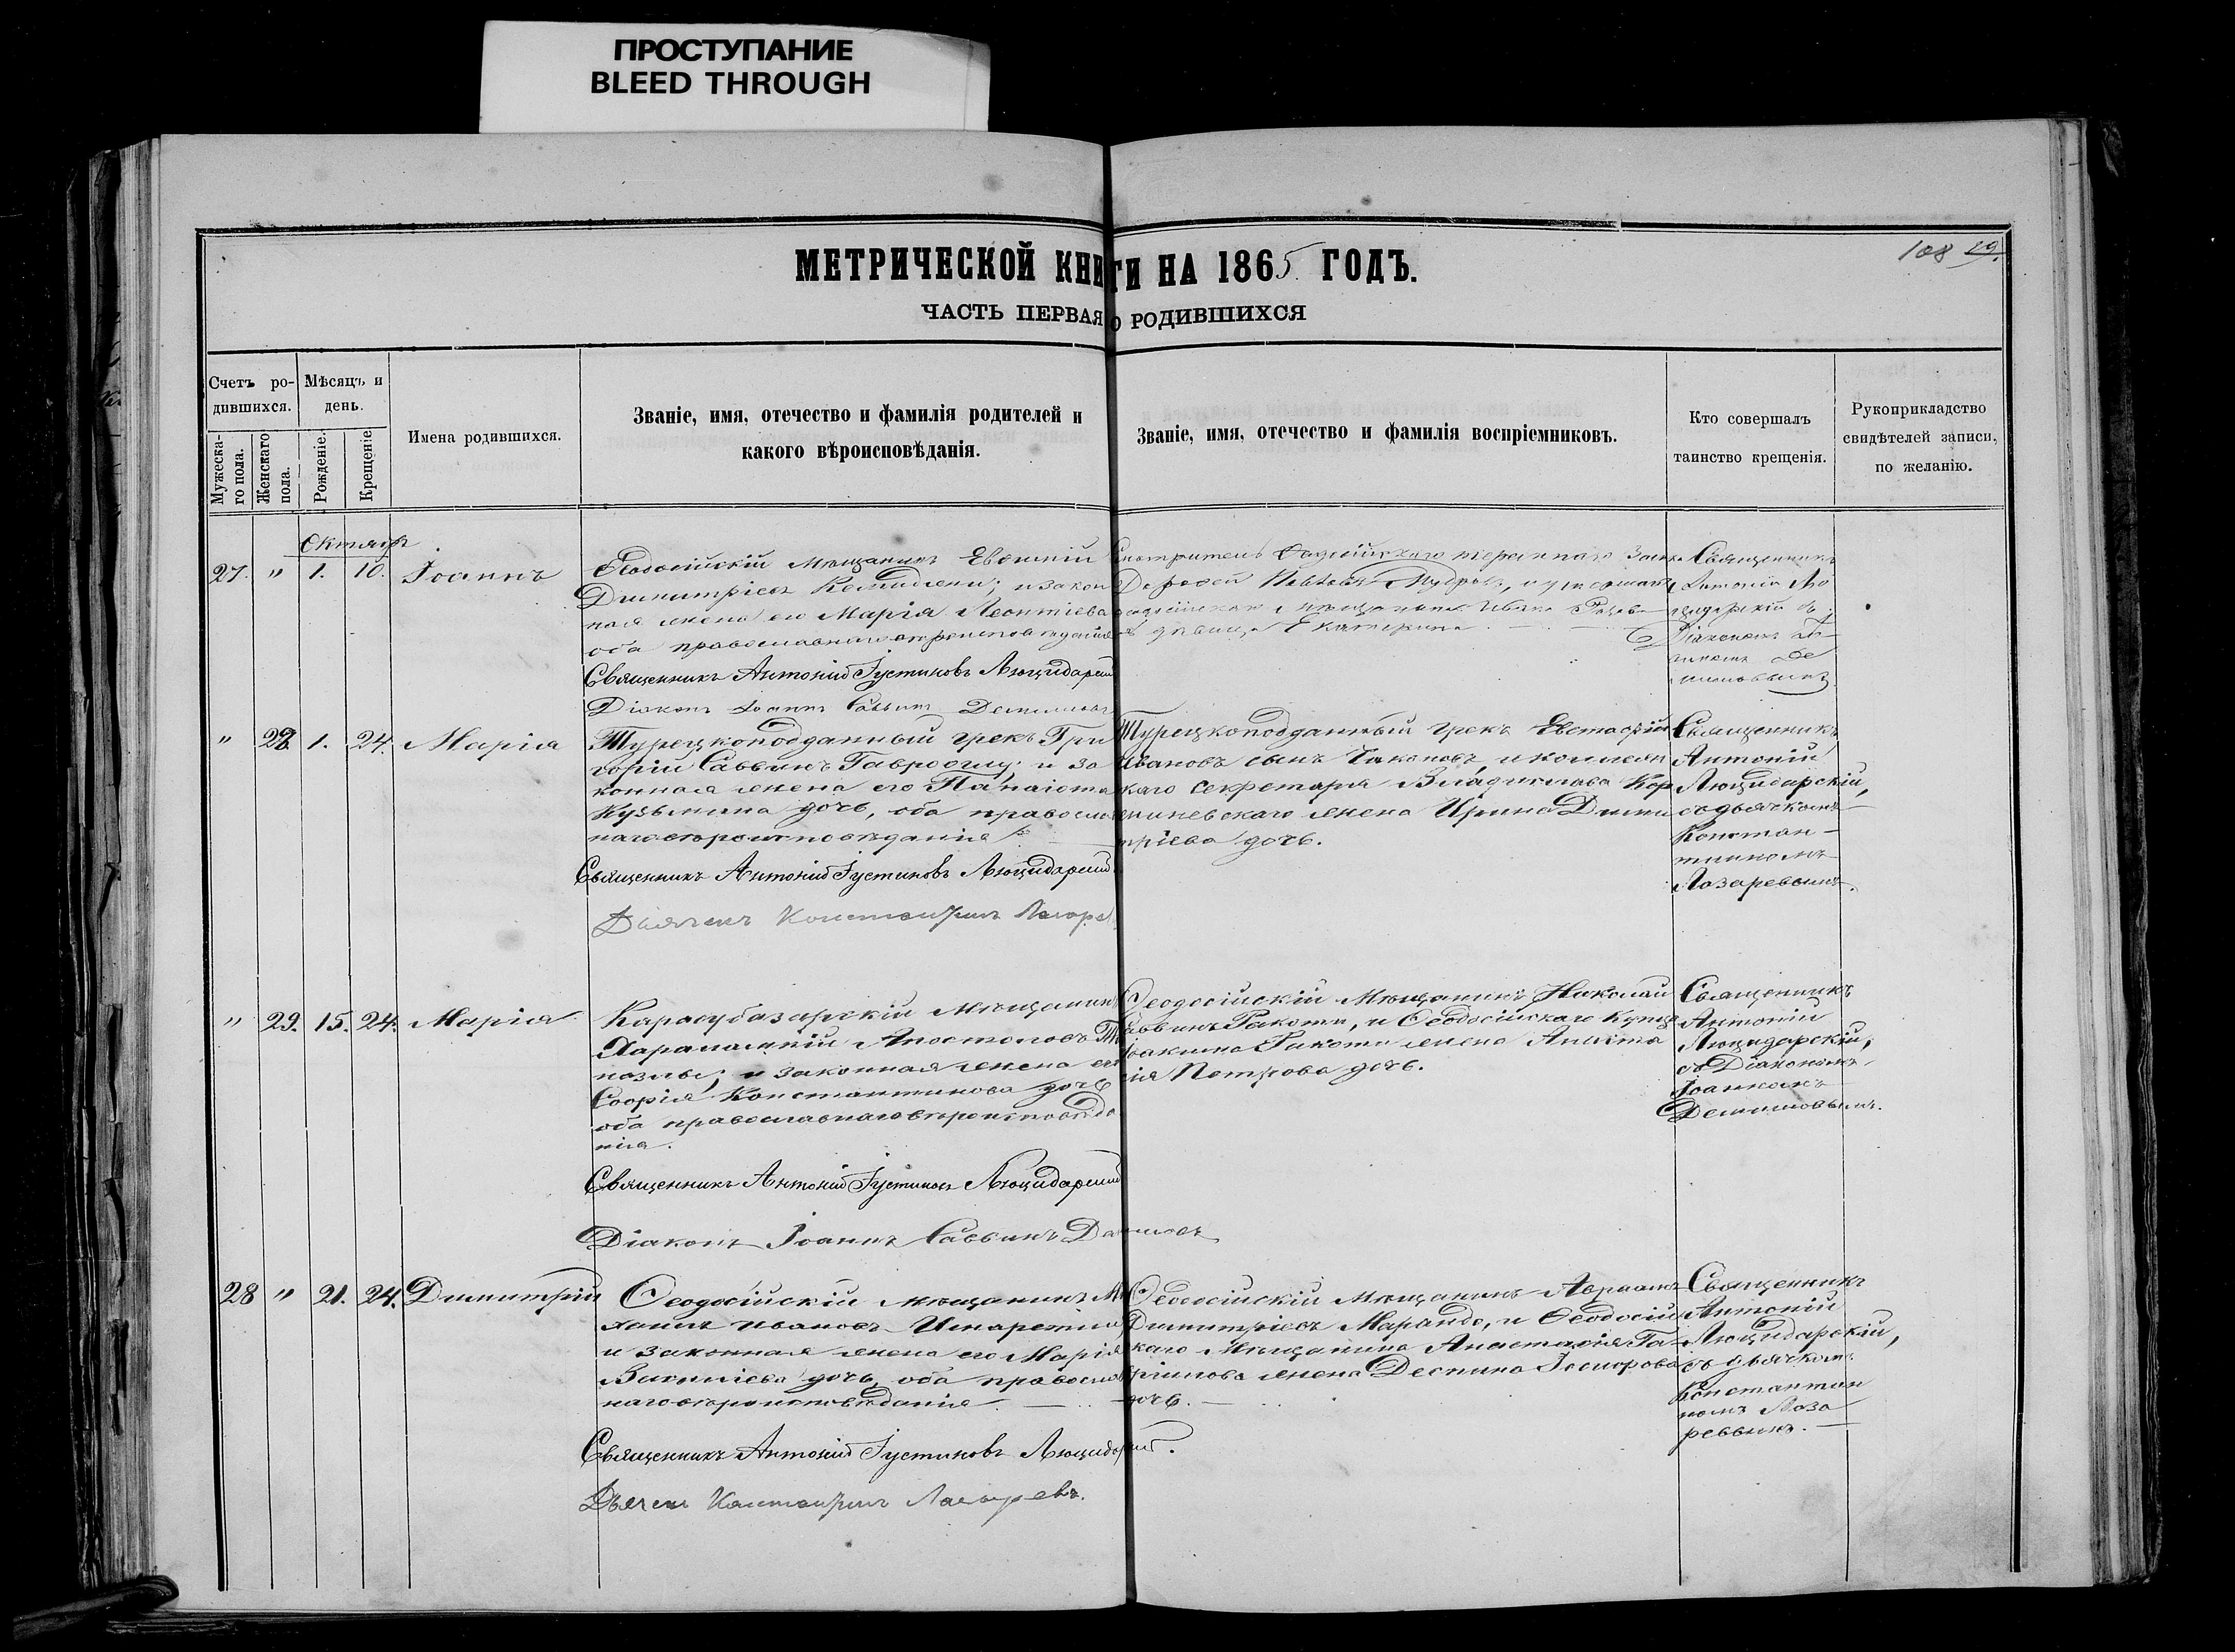 ПРОСТУПАНИЕ
BLEED THROUGH
108 29.
МЕТРИЧЕСКОЙ КНИГИ НА 1865 ГОДЪ.
ЧАСТЬ ПЕРВАЯ О РОДИВШИХСЯ
Счетъ ро-
дившихся.
Мужеска-
го пола.
Женскаго
пола.
Мѣсяцъ и
день.
Рожденіе.
Крещеніе.
Имена родившихся.
Званіе, имя, отечество и фамилія родителей и
какого вѣроисповѣданія.
Званіе, имя, отечество и фамилія воспріемниковъ.
Кто совершалъ
таинство крещенія.
Рукоприкладство
свидѣтелей записи,
по желанію.
Октябрь
27. " 1. 10. Іоаннъ
Ѳеодосійскій Мѣщанинъ Евѳимій
Димитріевъ и закон
ная жена его Марія Леонтіева
оба православнаго вѣроисповѣданія
Священникъ Антоній Іустиновъ Люцидарскій
Діаконъ Іоаннъ Саввинъ Демишовъ
Смотритель
дѣвица Екатерина
Священникъ
Антоній Лю
цидарскій съ
Діакономъ Іо
анномъ Де
мишовымъ
" 28. 1. 24. Марія
Турецкоподданный грекъ Гри
горій Саввинъ Гавроглу; и за
конная жена его Панаіота
Кузьмина дочь, оба православ
наго вѣроисповѣданія
Священникъ Антоній Іустиновъ Люцидарскій
Дьячекъ Константинъ Лазарев
Турецкоподданный грекъ Евстафій
Ивановъ сынъ и коллежс
каго секретаря Владислава Кор
жена Ирина Дими
тріева дочь.
Священникъ
Антоній
Люцидарскій,
съ дьячкомъ
Констан-
тиномъ
Лазаревымъ.
" 29. 15. 24. Марія
Карасубазарскій Мѣщанинъ
Харалампій Апостоловъ
и законная жена его
Софія Константинова дочь
оба православнаго вѣроисповѣда
нія.
Священникъ Антоній Іустиновъ Люцидарскій
Діаконъ Іоаннъ Саввинъ Демишовъ
Ѳеодосійскій Мѣщанинъ Николай
Саввинъ Ракоти, и Ѳеодосійскаго Купца
Іоакима Ракоти жена Анаста
сія Петрова дочь.
Священникъ
Антоній
Люцидарскій,
съ Діакономъ
Іоанномъ
Демишовымъ.
28 " 21. 24. Димитрій
Ѳеодосійскій мѣщанинъ Ми
хаилъ Ивановъ
и законная жена его Марія
Василіева дочь, оба православ
наго вѣроисповѣданія
Священникъ Антоній Іустиновъ Люцидарскій.
Дьячекъ Константинъ Лазаревъ.
Ѳеодосійскій Мѣщанинъ Авраамъ
Димитріевъ Марандо, и Ѳеодосійс
каго Мѣщанина Анастасія Га
жена Деспина Ѳеодорова
дочь.
Священникъ
Антоній
Люцидарскій,
съ дьячкомъ
Константи
номъ Лаза
ревымъ.